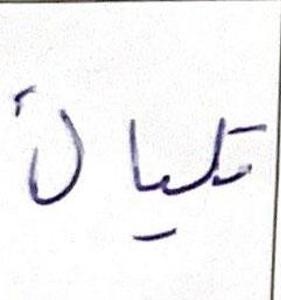 تليان